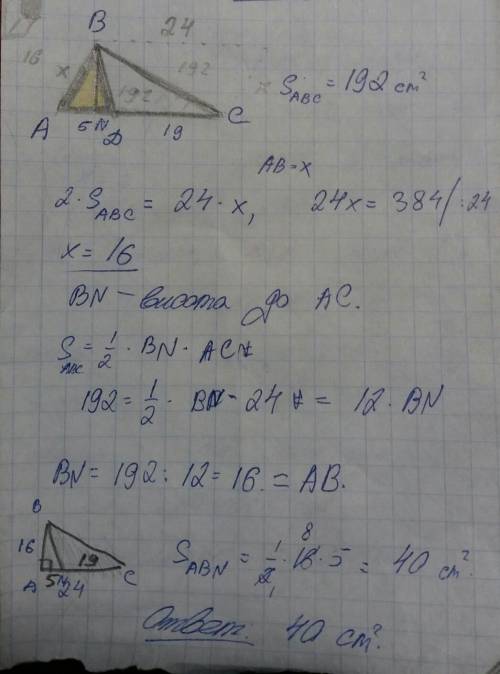 B
24
16
x
192
192
S_ABC = 192 см²
A
5
N
D
19
C
AB = x
2 · S_ABC = 24 · x, 24x = 384 /:24
x = 16
BN – висота до AC.
S_ABC = 1/2 · BN · AC
192 = 1/2 · BN · 24 = 12 · BN
BN = 192 : 12 = 16. = AB.
B
16
19
A
5
N
24
C
S_ABN = 1/2 · 16 · 5 = 40 см².
8
1
Ответ: 40 см².